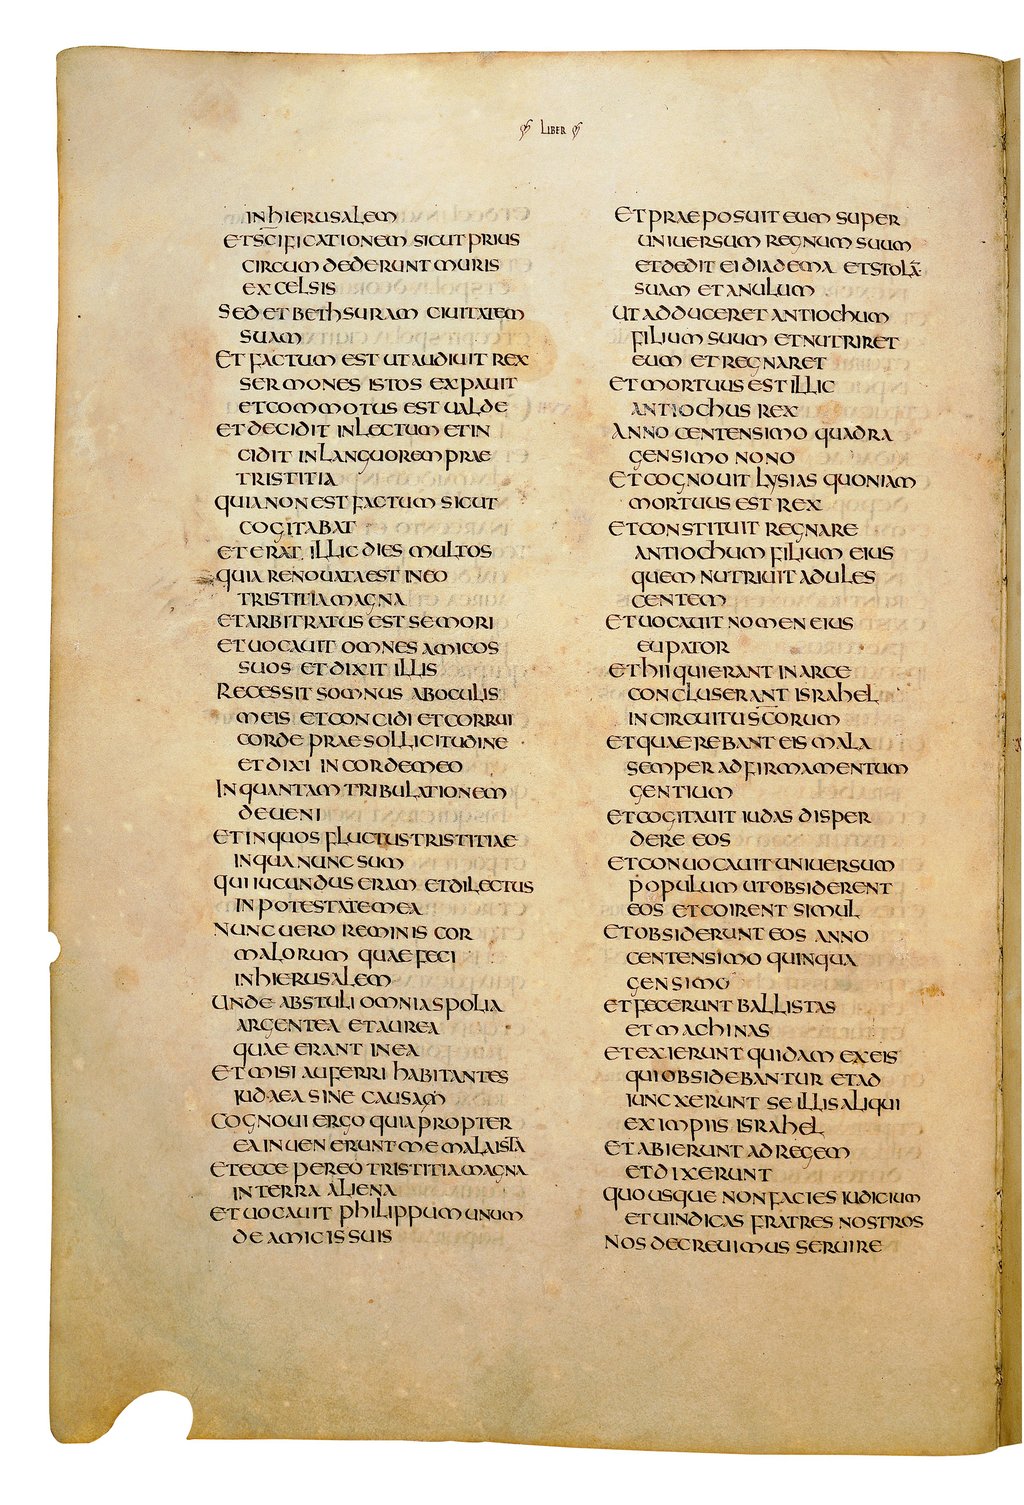 LIBER
IN HIERUSALEM
ET S̄C̄IFICATIONEM SICUT PRIUS
CIRCUMDEDERUNT MURIS
EXCELSIS
SED ET BETHSURAM CIUITATEM
SUAM
ET FACTUM EST UT AUDIUIT REX
SERMONES ISTOS EXPAUIT
ET COMMOTUS EST UALDE
ET DECIDIT IN LECTUM ET IN
CIDIT IN LANGUOREM PRAE
TRISTITIA
QUIA NON EST FACTUM SICUT
COGITABAT
ET ERAT ILLIC DIES MULTOS
QUIA RENOUATA EST IN EO
TRISTITIA MAGNA
ET ARBITRATUS EST SE MORI
ET UOCAUIT OMNES AMICOS
SUOS ET DIXIT ILLIS
RECESSIT SOMNUS AB OCULIS
MEIS ET CONCIDI ET CORRUI
CORDE PRAE SOLLICITUDINE
ET DIXI IN CORDE MEO
IN QUANTAM TRIBULATIONEM
DEUENI
ET IN QUOS FLUCTUS TRISTITIAE
IN QUA NUNC SUM
QUI IUCUNDUS ERAM ET DILECTUS
IN POTESTATE MEA
NUNC UERO REMINISCOR
MALORUM QUAE FECI
IN HIERUSALEM
UNDE ABSTULI OMNIA SPOLIA
ARGENTEA ET AUREA
QUAE ERANT IN EA
ET MISI AUFERRI HABITANTES
IUDAEA SINE CAUSAM
COGNOUI ERGO QUIA PROPTER
EA INUENERUNT ME MALA ISTA
ET ECCE PEREO TRISTITIA MAGNA
IN TERRA ALIENA
ET UOCAUIT PHILIPPUM UNUM
DE AMICIS SUIS
ET PRAEPOSUIT EUM SUPER
UNIUERSUM REGNUM SUUM
ET DEDIT EI DIADEMA ET STOLĀ
SUAM ET ANULUM
UT ADDUCERET ANTIOCHUM
FILIUM SUUM ET NUTRIRET
EUM ET REGNARET
ET MORTUUS EST ILLIC
ANTIOCHUS REX
ANNO CENTENSIMO QUADRA
GENSIMO NONO
ET COGNOUIT LYSIAS QUONIAM
MORTUUS EST REX
ET CONSTITUIT REGNARE
ANTIOCHUM FILIUM EIUS
QUEM NUTRIUIT ADULES
CENTEM
ET UOCAUIT NOMEN EIUS
EUPATOR
ET HII QUI ERANT IN ARCE
CONCLUSERANT ISRAHEL
IN CIRCUITU S̄C̄ORUM
ET QUAEREBANT EIS MALA
SEMPER AD FIRMAMENTUM
GENTIUM
ET COGITAUIT IUDAS DISPER
DERE EOS
ET CONUOCAUIT UNIUERSUM
POPULUM UT OBSIDERENT
EOS ET COIRENT SIMUL
ET OBSIDERUNT EOS ANNO
CENTENSIMO QUINQUA
GENSIMO
ET FECERUNT BALLISTAS
ET MACHINAS
ET EXIERUNT QUIDAM EX EIS
QUI OBSIDEBANTUR ET AD
IUNCXERUNT SE ILLIS ALIQUI
EX IMPIIS ISRAHEL
ET ABIERUNT AD REGEM
ET DIXERUNT
QUOUSQUE NON FACIES IUDICIUM
ET UINDICAS FRATRES NOSTROS
NOS DECREUIMUS SERUIRE